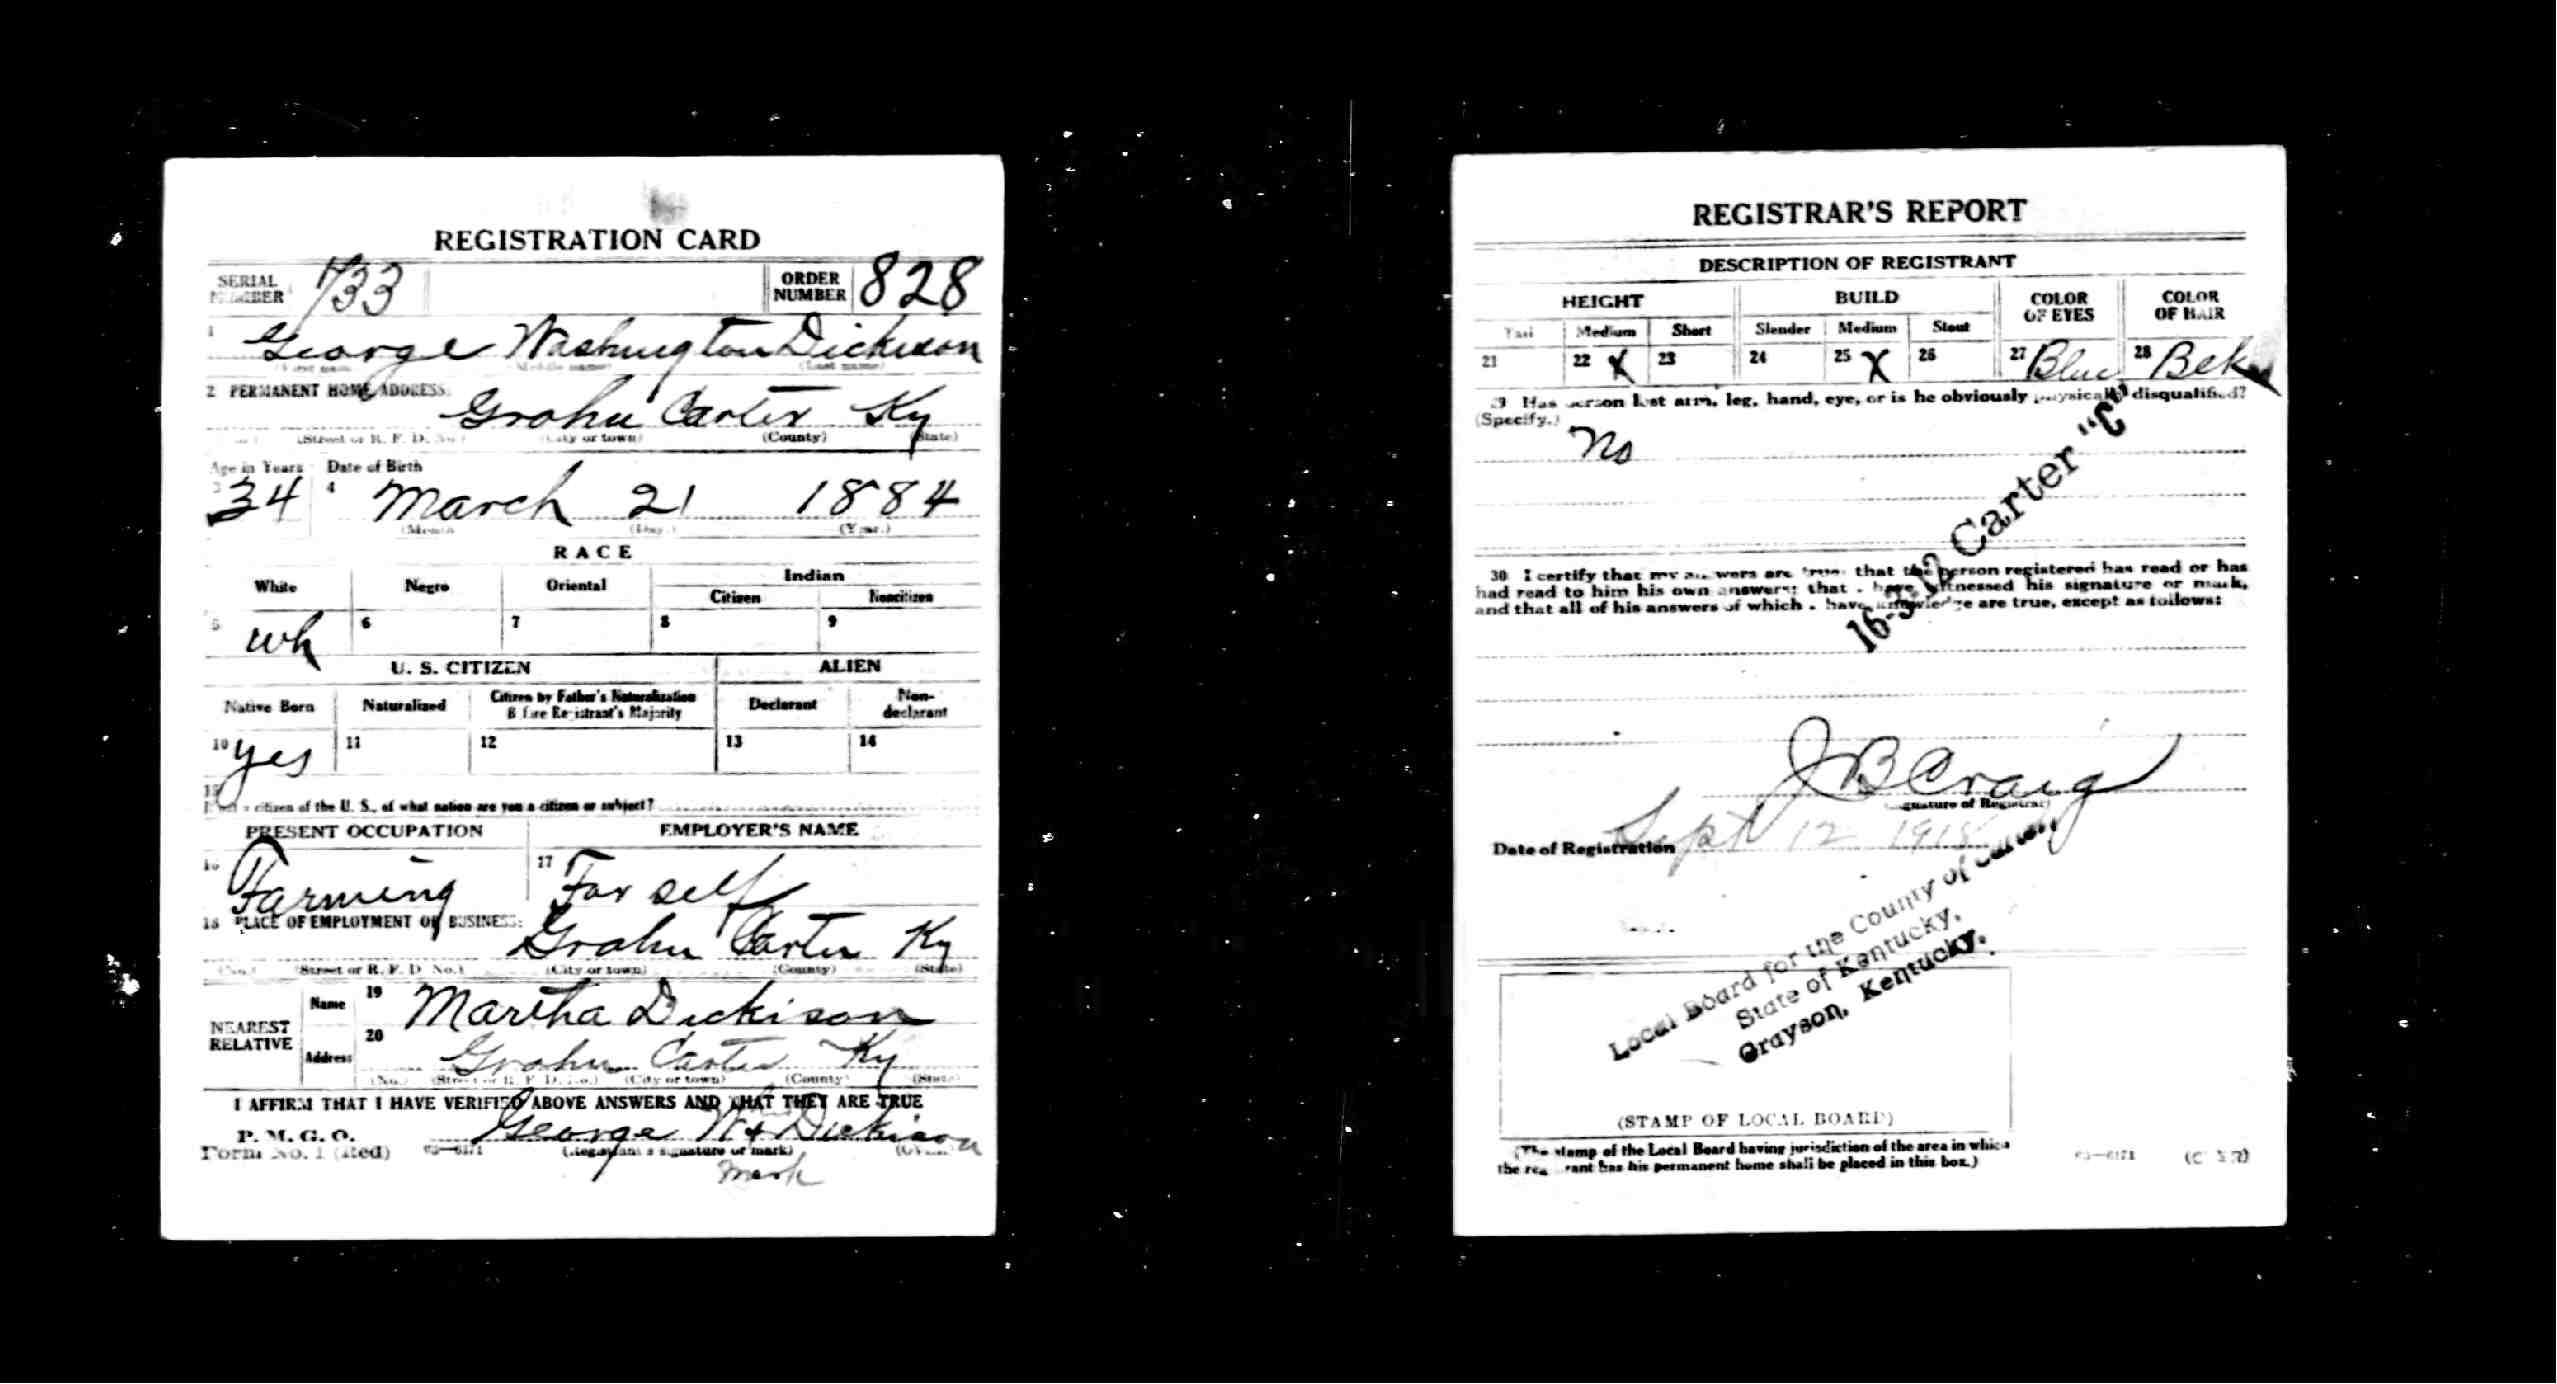 REGISTRATION CARD
SERIAL NUMBER 733 ORDER NUMBER 828
1 George Washington Dickison
(First name) (Middle name) (Last name)
2 PERMANENT HOME ADDRESS:
Grahn Carter Ky
(Street or R. F. D. No.) (City or town) (County) (State)
Age in Years Date of Birth
3 34 4 March 21 1884
(Month) (Day.) (Year.)
RACE
White Negro Oriental Indian
Citizen Noncitizen
5 wh 6 7 8 9
U. S. CITIZEN ALIEN
Native Born Naturalized Citizen by Father's Naturalization Before Registrant's Majority Declarant Non-declarant
10 yes 11 12 13 14
15
If not a citizen of the U. S., of what nation are you a citizen or subject?
PRESENT OCCUPATION EMPLOYER'S NAME
16 Farming 17 For self
18 PLACE OF EMPLOYMENT OR BUSINESS:
Grahn Carter Ky
(No.) (Street or R. F. D. No.) (City or town) (County) (State)
NEAREST RELATIVE Name 19 Martha Dickison
Address 20 Grahn Carter Ky
(No.) (Street or R. F. D. No.) (City or town) (County) (State)
I AFFIRM THAT I HAVE VERIFIED ABOVE ANSWERS AND THAT THEY ARE TRUE
P. M. G. O.
Form No. 1 (Red) 03—6171 George W x Dickison
(Registrant's signature or mark)
mark
REGISTRAR'S REPORT
DESCRIPTION OF REGISTRANT
HEIGHT BUILD COLOR OF EYES COLOR OF HAIR
Tall Medium Short Slender Medium Stout
21 22 X 23 24 25 X 26 27 Blue 28 Bck
29 Has person lost arm, leg, hand, eye, or is he obviously physically disqualified?
(Specify.)
No
16-3-12 Carter "C"
30 I certify that my answers are true; that the person registered has read or has
had read to him his own answers; that I have witnessed his signature or mark,
and that all of his answers of which I have knowledge are true, except as follows:
J B Craig
(Signature of Registrar)
Date of Registration Sept 12 1918
Local Board for the County of Carter,
State of Kentucky,
Grayson, Kentucky.
(STAMP OF LOCAL BOARD)
(The stamp of the Local Board having jurisdiction of the area in which
the registrant has his permanent home shall be placed in this box.)
03—6171